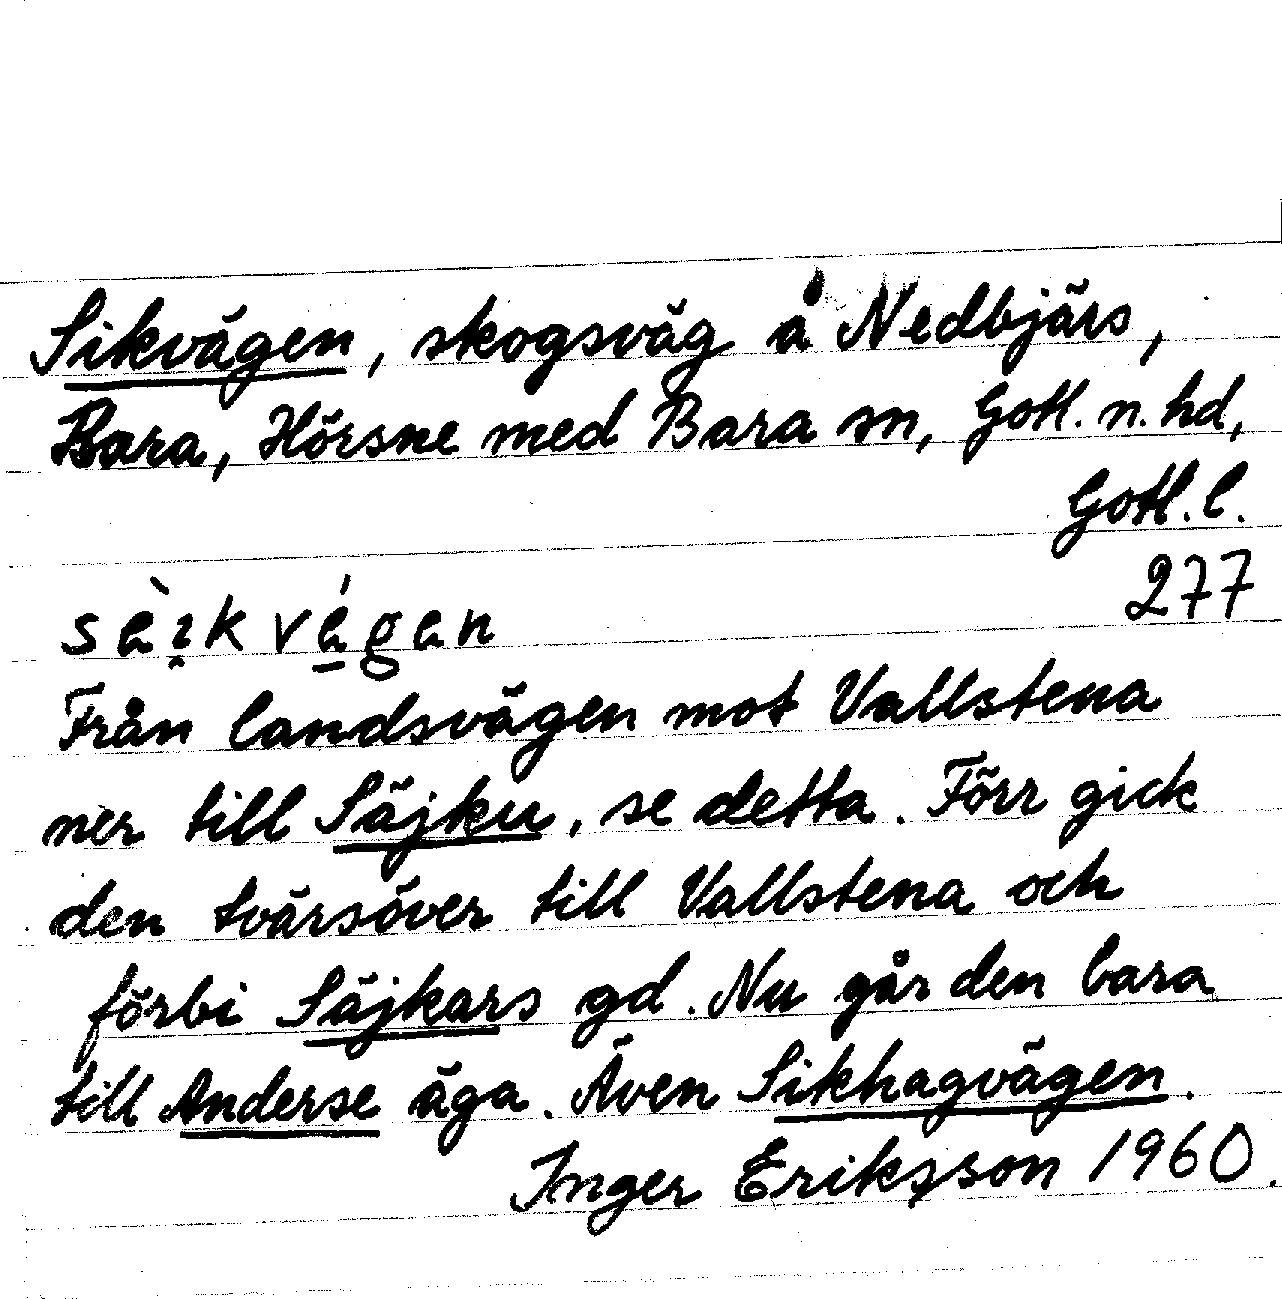 Sikvägen, skogsväg å Nedbjärs,
Bara, Hörsne med Bara sn, Gotl. n. hd,
Gotl. l.
277
sèı̯k vé̠gen
Från landsvägen mot Vallstena
ner till Säjku, se detta. Förr gick
den tvärsöver till Vallstena och
förbi Säjkars gd. Nu går den bara
till Anderse äga. Även Sikhagvägen.
Inger Eriksson 1960.